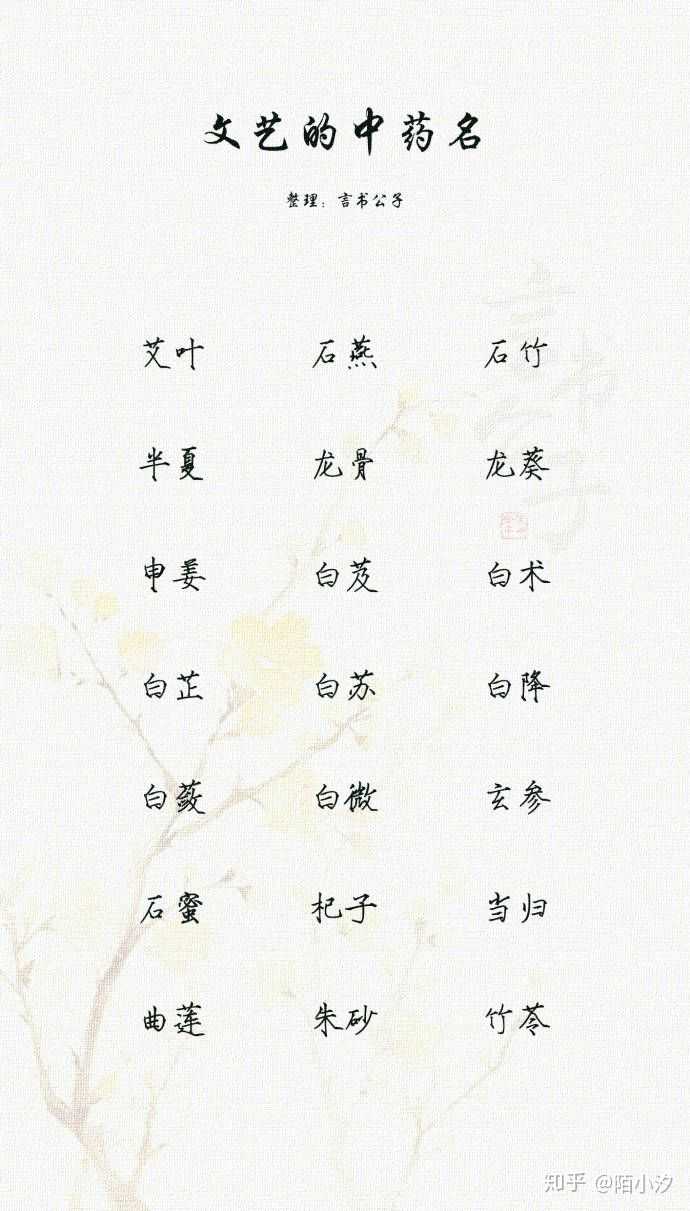 文艺的中药名
整理：言书公子
艾叶 石燕 石竹
半夏 龙骨 龙葵
申姜 白芨 白术
白芷 白苏 白降
白蔹 白微 玄参
石蜜 杞子 当归
曲莲 朱砂 竹苓
言书公子
知乎 @陌小汐